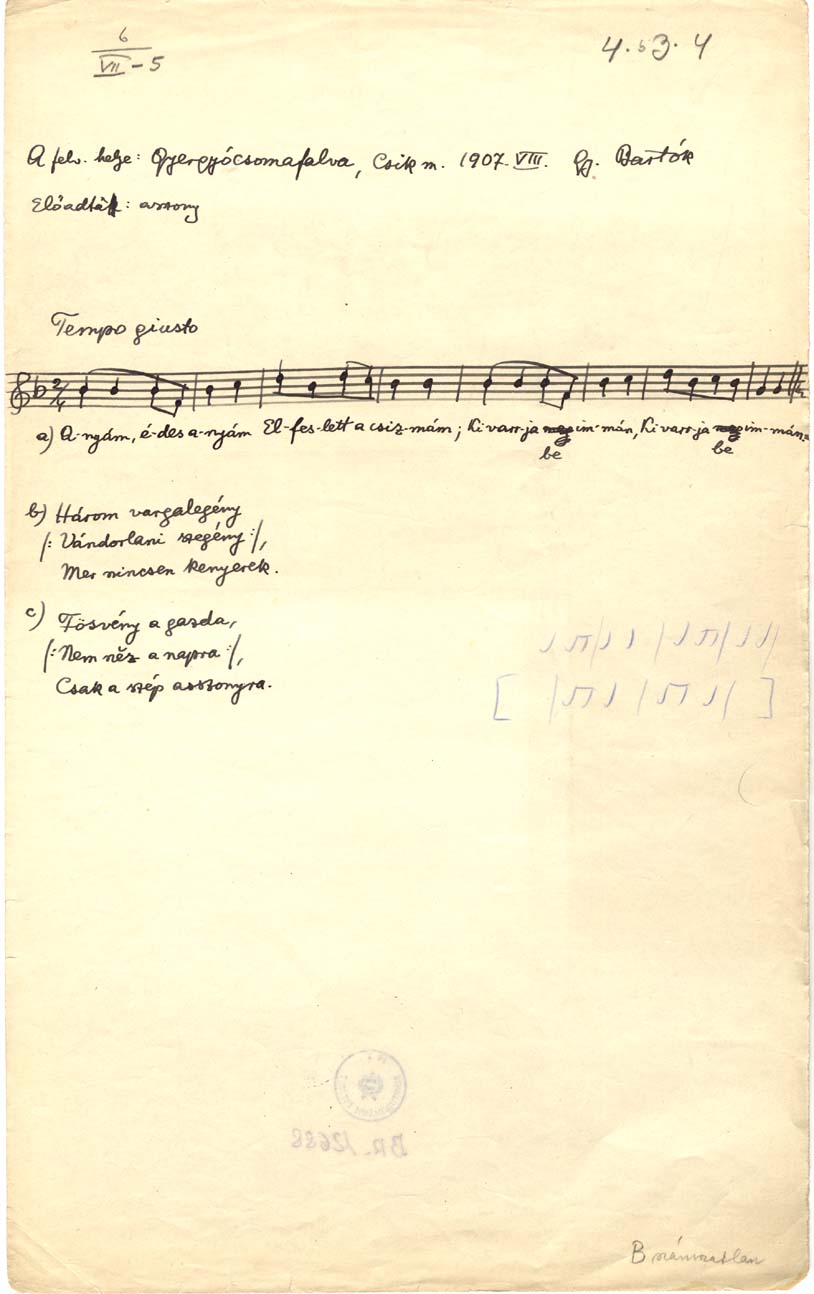 6
VII - 5
4. b3. 4
A felv. helye: Gyergyócsomafalva, Csik m. 1907. VIII. Gy. Bartók
Előadták: asszony
Tempo giusto
2/4
a) A-nyám, é-des a-nyám El-fes-lett a csiz-mám; Ki varr-ja meg im-mán, Ki varr-ja meg im-mán.
be be
b) Három vargalegény
/: Vándorlani szegény :/,
Mer nincsen kenyerek.
c) Fösvény a gazda,
/: Nem něz a napra :/,
Csak a szép asszonyra.
BR. 12688
B számozatlan